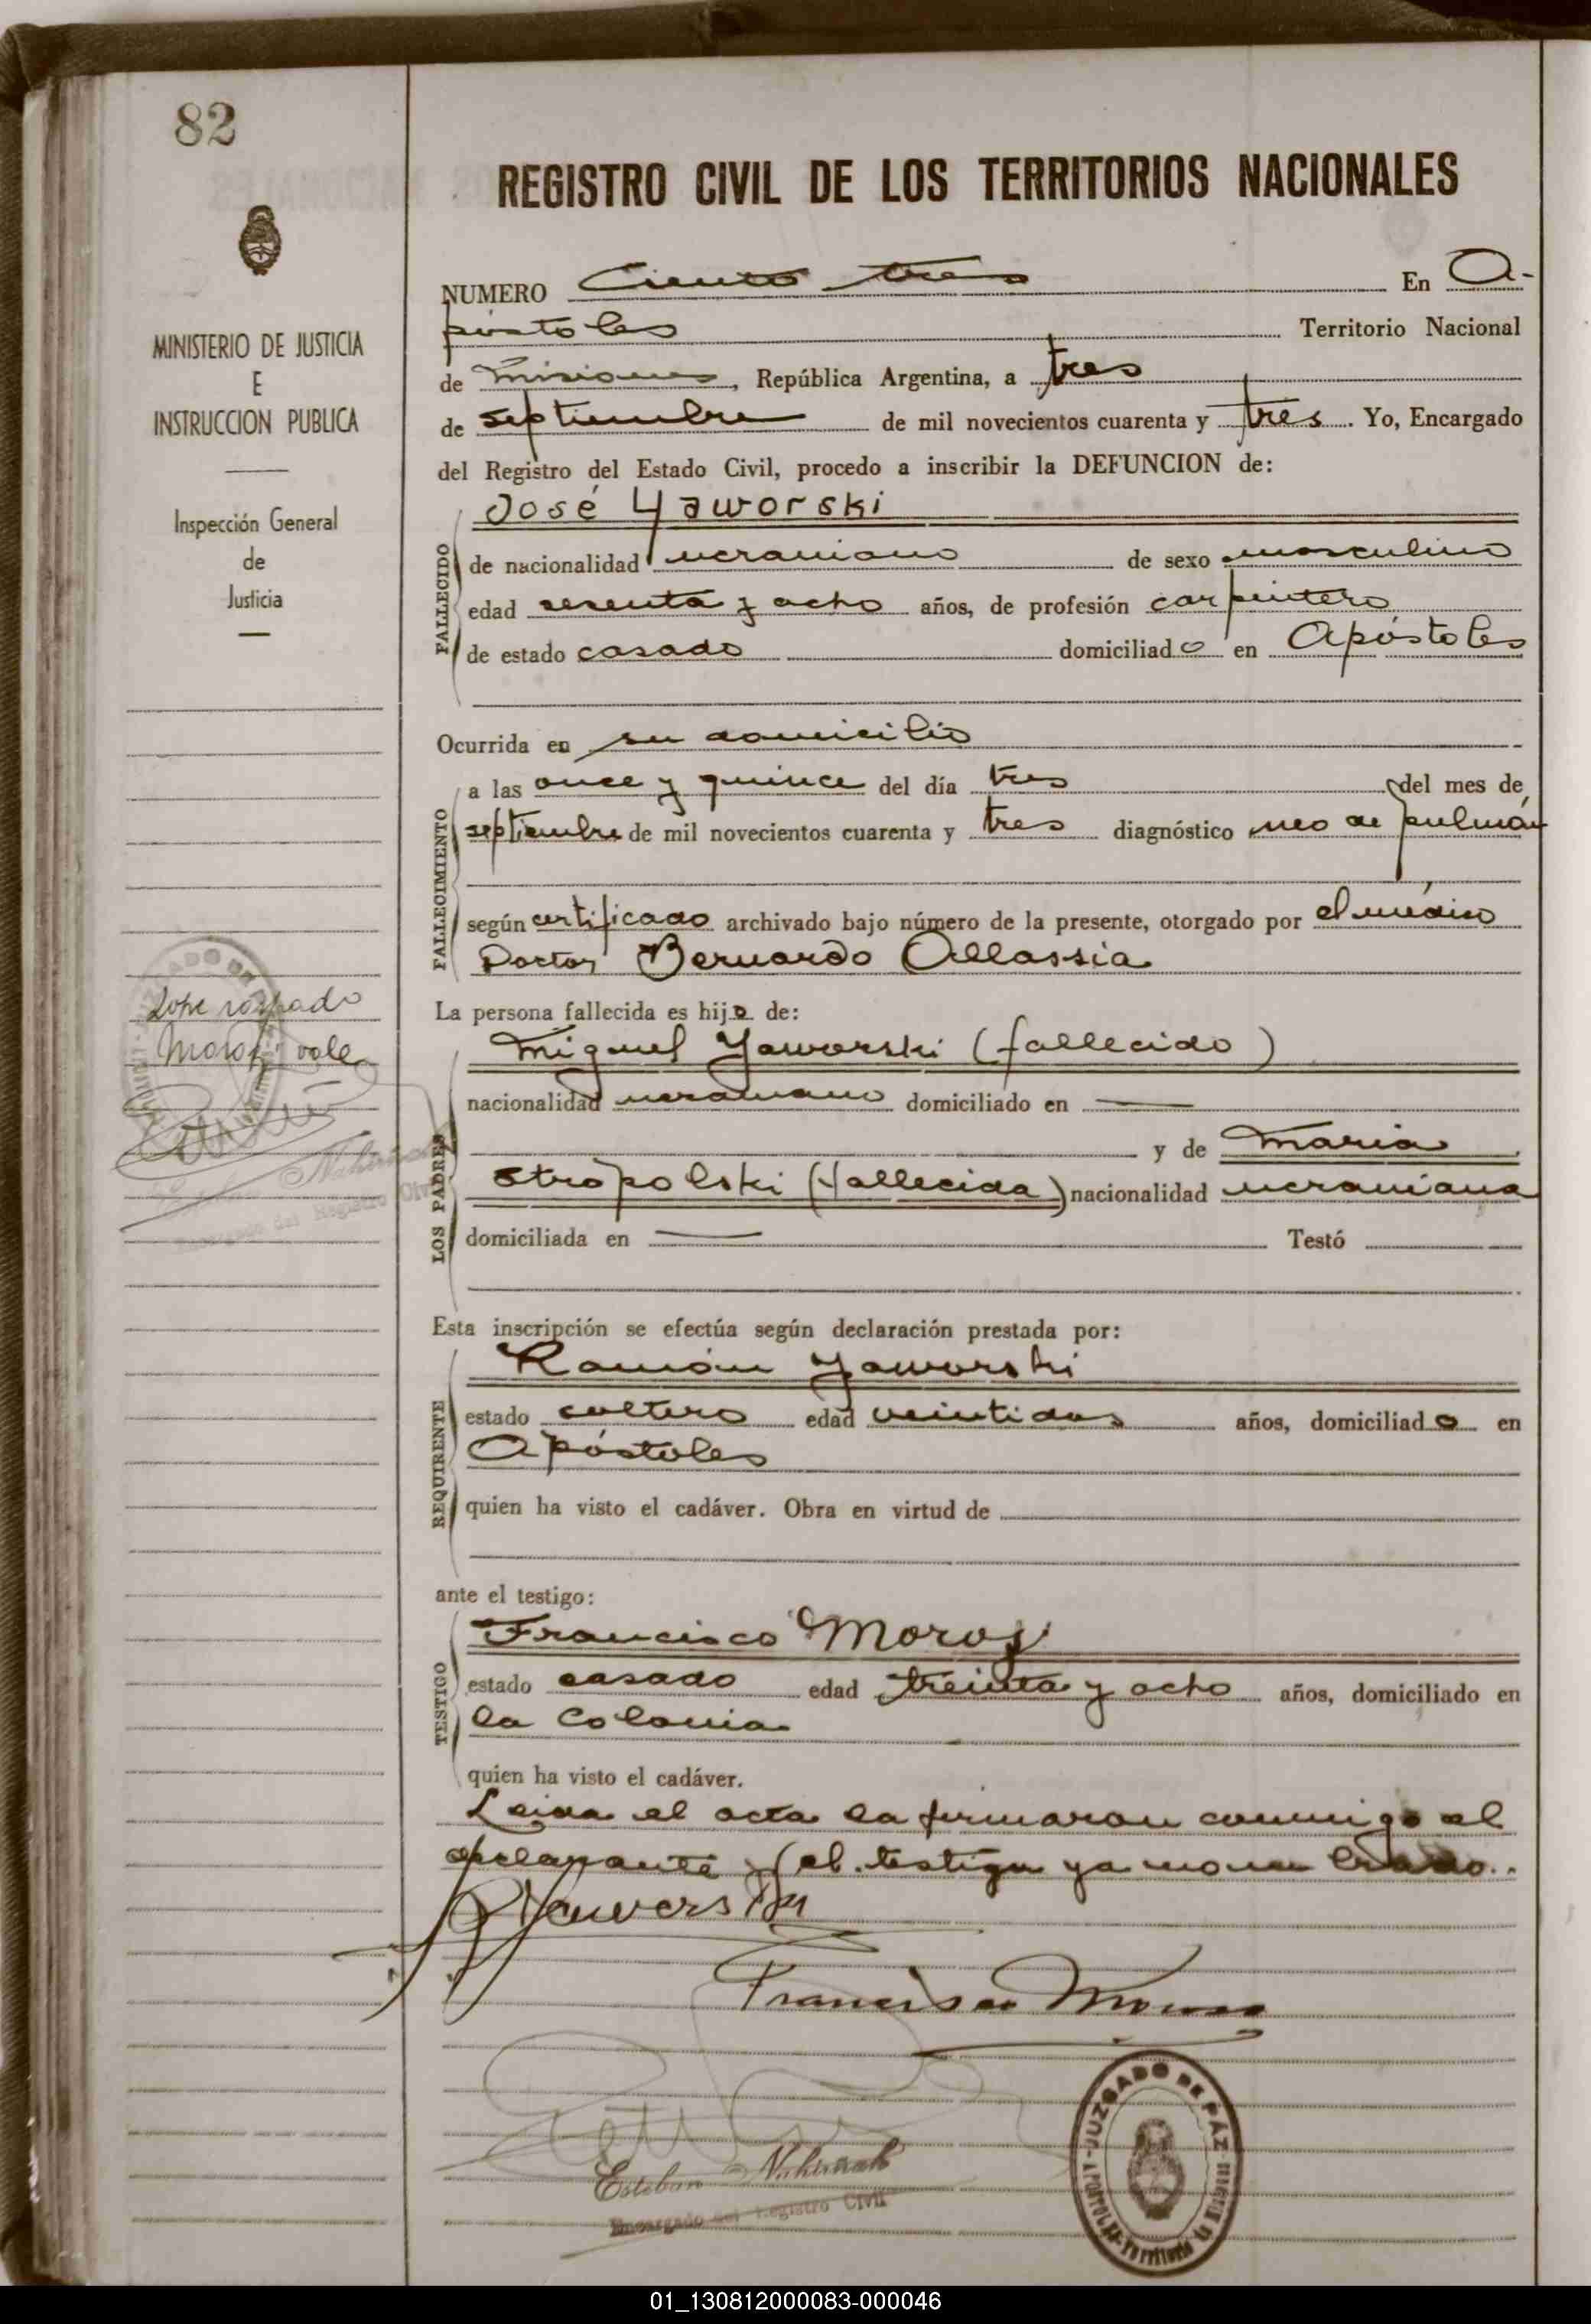 82
REGISTRO CIVIL DE LOS TERRITORIOS NACIONALES
MINISTERIO DE JUSTICIA
E
INSTRUCCION PUBLICA
Inspección General
de
Justicia
NUMERO Ciento tres En A-
póstoles Territorio Nacional
de Misiones, República Argentina, a tres
de septiembre de mil novecientos cuarenta y tres. Yo, Encargado
del Registro del Estado Civil, procedo a inscribir la DEFUNCION de:
José Yaworski
FALLECIDO
de nacionalidad ucraniano de sexo masculino
edad sesenta y ocho años, de profesión carpintero
de estado casado domiciliado en Apóstoles
Ocurrida en su domicilio
FALLECIMIENTO
a las once y quince del día tres del mes de
septiembre de mil novecientos cuarenta y tres diagnóstico neo de pulmón
según certificado archivado bajo número de la presente, otorgado por el médico
Doctor Bernardo Allassia
La persona fallecida es hijo de:
Sobre raspado
Moroz: vale
LOS PADRES
Miguel Yaworski (fallecido)
nacionalidad ucraniano domiciliado en —
y de Maria
Stropolski (fallecida) nacionalidad ucraniana
domiciliada en — Testó
Esta inscripción se efectúa según declaración prestada por:
REQUIRENTE
Ramón Yaworski
estado soltero edad veintidos años, domiciliado en
Apóstoles
quien ha visto el cadáver. Obra en virtud de
ante el testigo:
TESTIGO
Francisco Moroz
estado casado edad treinta y ocho años, domiciliado en
la Colonia
quien ha visto el cadáver.
Leida el acta la firmaron conmigo el
declarante y el testigo ya nombrado.
Yaworski
Francisco Moroz
Esteban Nahirñak
Encargado del Registro Civil
JUZGADO DE PAZ
APOSTOLES Territorio
01_130812000083-000046